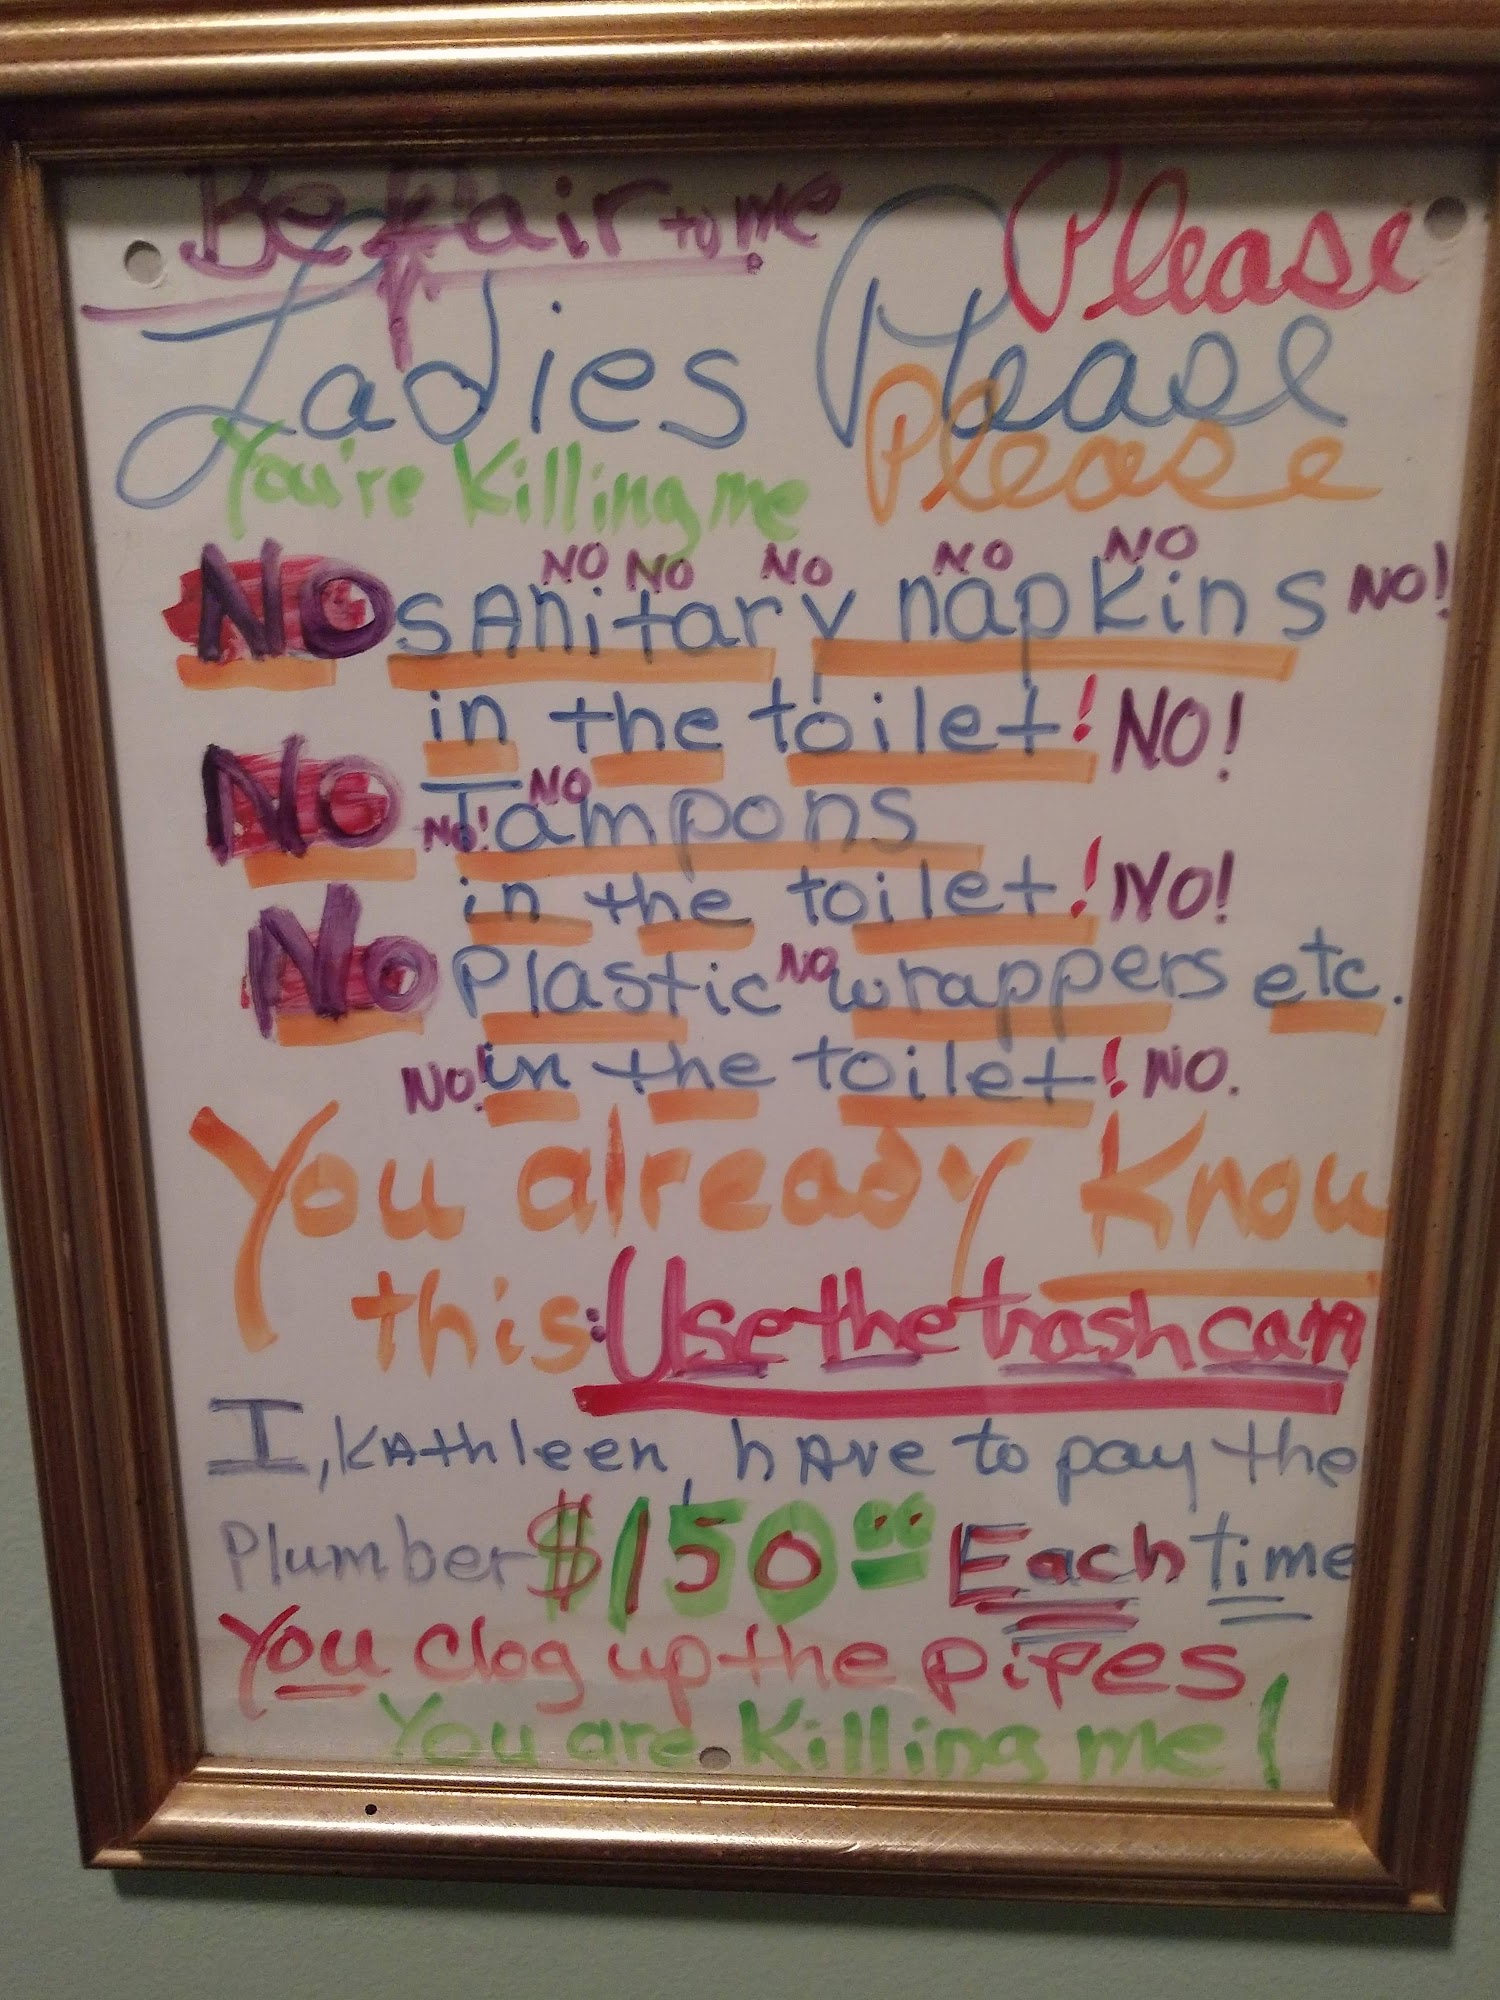 Be fair to me
Please
Ladies Please
You're Killing me Please
NO NO NO NO NO
NO sanitary napkins NO!
in the toilet! NO!
NO
NO NO! Tampons
in the toilet! NO!
NO Plastic NO wrappers etc.
NO! in the toilet! NO.
You already Know
this: Use the trash can
I, Kathleen, have to pay the
Plumber $150.00 Each time
You clog up the pipes
You are Killing me!